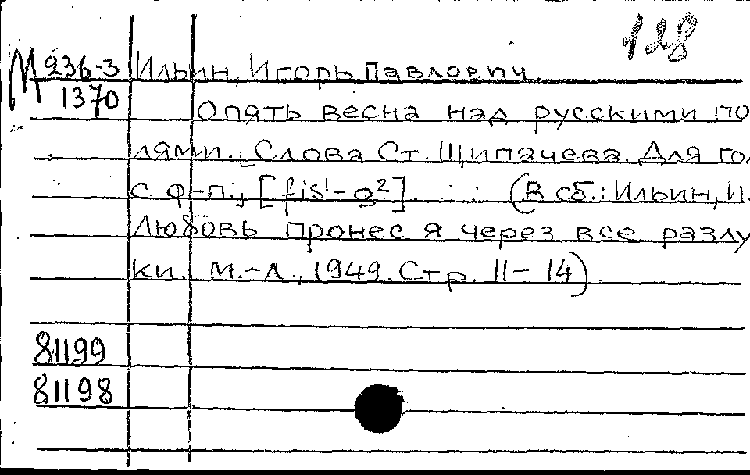 128
М 236-3 Ильин, Игорь Павлович.
1370 Опять весна над русскими по
лями. Слова Ст. Щипачева. Для гол
с ф-п., [fis¹-a²]. (В сб.: Ильин, И.
Любовь пронес я через все разлу
ки. М.-Л., 1949. Стр. 11-14)
81199
81198